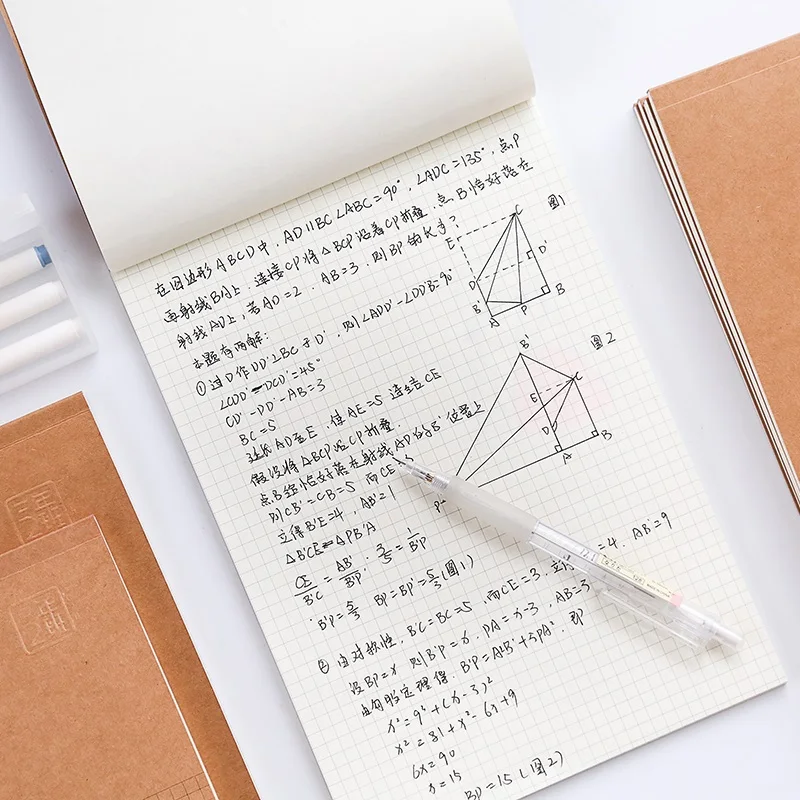 在四边形ABCD中，AD∥BC∠ABC=90°，∠ADC=135°，点P
再射线BA上，连接CP将△BCP沿着CP折叠，点B恰好落在
射线AD上，若AD=2，AB=3，则BP的长为？
本题有两解：
①过D作DD'⊥BC于D'，则∠ADD'-∠DD'B=90°
∠CDD'-DCD'=45°
CD'-DD'-AB=3
BC=5
延长AD至E，使AE=5连结CE
假设将△BCP沿CP折叠，
点B经恰好落在射线AD的B'位置上
则CB'=CB=5 而CE
立得B'E=4，AB'=1
△B'CE △PB'A
CE/B'C=AB'/B'P，3/5=1/B'P
B'P=5/3 BP=BP'=5/3(图1)
② 由对称性，B'C=BC=5，而CE=3，立得 =4，AB'=9
设BP=x 则B'P=x，PA=x-3，AB=3
由勾股定理得，B'P=A²B'+ PA²，即
x²=9²+(x-3)²
x²=81+x²-6x+9
6x=90
x=15
BP=15(图2)
图1
C
E
D'
D
B'
A
P
B
图2
B'
C
E
D
A
B
P